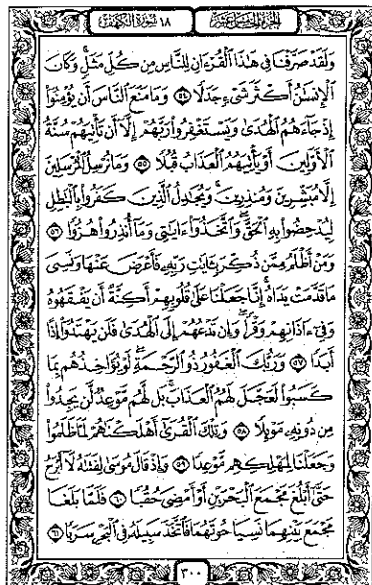 الجزء الخامس عشر ١٨ سورة الكهف
وَلَقَدْ صَرَّفْنَا فِي هَٰذَا ٱلْقُرْءَانِ لِلنَّاسِ مِن كُلِّ مَثَلٍ ۚ وَكَانَ
ٱلْإِنسَٰنُ أَكْثَرَ شَىْءٍ جَدَلًا ۝٥٤ وَمَا مَنَعَ ٱلنَّاسَ أَن يُؤْمِنُوٓا۟
إِذْ جَآءَهُمُ ٱلْهُدَىٰ وَيَسْتَغْفِرُوا۟ رَبَّهُمْ إِلَّآ أَن تَأْتِيَهُمْ سُنَّةُ
ٱلْأَوَّلِينَ أَوْ يَأْتِيَهُمُ ٱلْعَذَابُ قُبُلًا ۝٥٥ وَمَا نُرْسِلُ ٱلْمُرْسَلِينَ
إِلَّا مُبَشِّرِينَ وَمُنذِرِينَ ۚ وَيُجَٰدِلُ ٱلَّذِينَ كَفَرُوا۟ بِٱلْبَٰطِلِ
لِيُدْحِضُوا۟ بِهِ ٱلْحَقَّ ۖ وَٱتَّخَذُوٓا۟ ءَايَٰتِى وَمَآ أُنذِرُوا۟ هُزُوًا ۝٥٦
وَمَنْ أَظْلَمُ مِمَّن ذُكِّرَ بِـَٔايَٰتِ رَبِّهِۦ فَأَعْرَضَ عَنْهَا وَنَسِىَ
مَا قَدَّمَتْ يَدَاهُ ۚ إِنَّا جَعَلْنَا عَلَىٰ قُلُوبِهِمْ أَكِنَّةً أَن يَفْقَهُوهُ
وَفِىٓ ءَاذَانِهِمْ وَقْرًا ۖ وَإِن تَدْعُهُمْ إِلَى ٱلْهُدَىٰ فَلَن يَهْتَدُوٓا۟ إِذًا
أَبَدًا ۝٥٧ وَرَبُّكَ ٱلْغَفُورُ ذُو ٱلرَّحْمَةِ ۖ لَوْ يُؤَاخِذُهُم بِمَا
كَسَبُوا۟ لَعَجَّلَ لَهُمُ ٱلْعَذَابَ ۚ بَل لَّهُم مَّوْعِدٌ لَّن يَجِدُوا۟
مِن دُونِهِۦ مَوْئِلًا ۝٥٨ وَتِلْكَ ٱلْقُرَىٰٓ أَهْلَكْنَٰهُمْ لَمَّا ظَلَمُوا۟
وَجَعَلْنَا لِمَهْلِكِهِم مَّوْعِدًا ۝٥٩ وَإِذْ قَالَ مُوسَىٰ لِفَتَىٰهُ لَآ أَبْرَحُ
حَتَّىٰٓ أَبْلُغَ مَجْمَعَ ٱلْبَحْرَيْنِ أَوْ أَمْضِىَ حُقُبًا ۝٦٠ فَلَمَّا بَلَغَا
مَجْمَعَ بَيْنِهِمَا نَسِيَا حُوتَهُمَا فَٱتَّخَذَ سَبِيلَهُۥ فِى ٱلْبَحْرِ سَرَبًا ۝٦١
٣٠٠